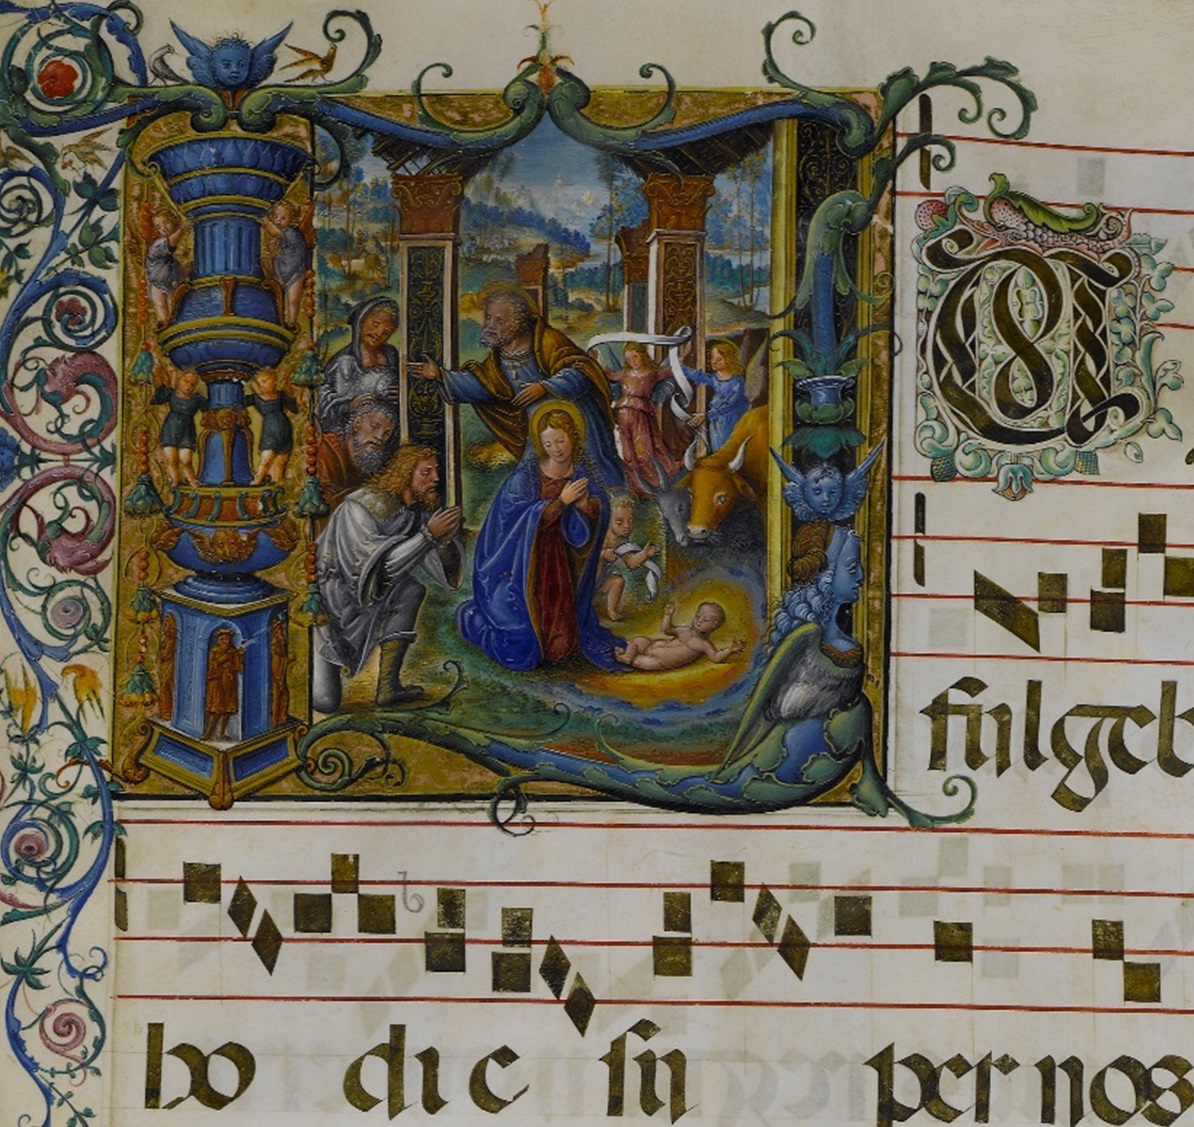 LU
fulgeb
ho di e su per nos